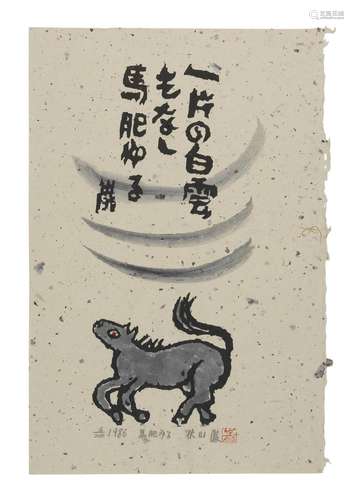 一片の白雲
もなし
馬肥ゆる
巌
1986 馬肥ゆる 秋山巌